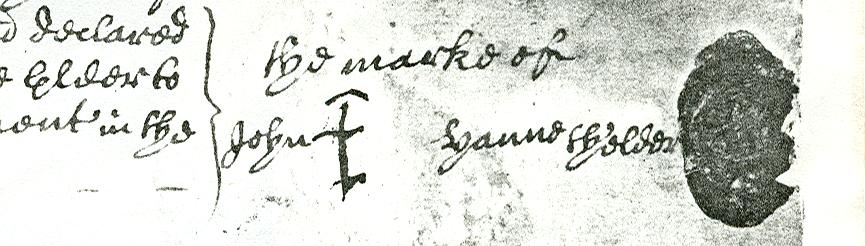 d declared
e Elder to
ment in the
the marke of
John Vanne thelder